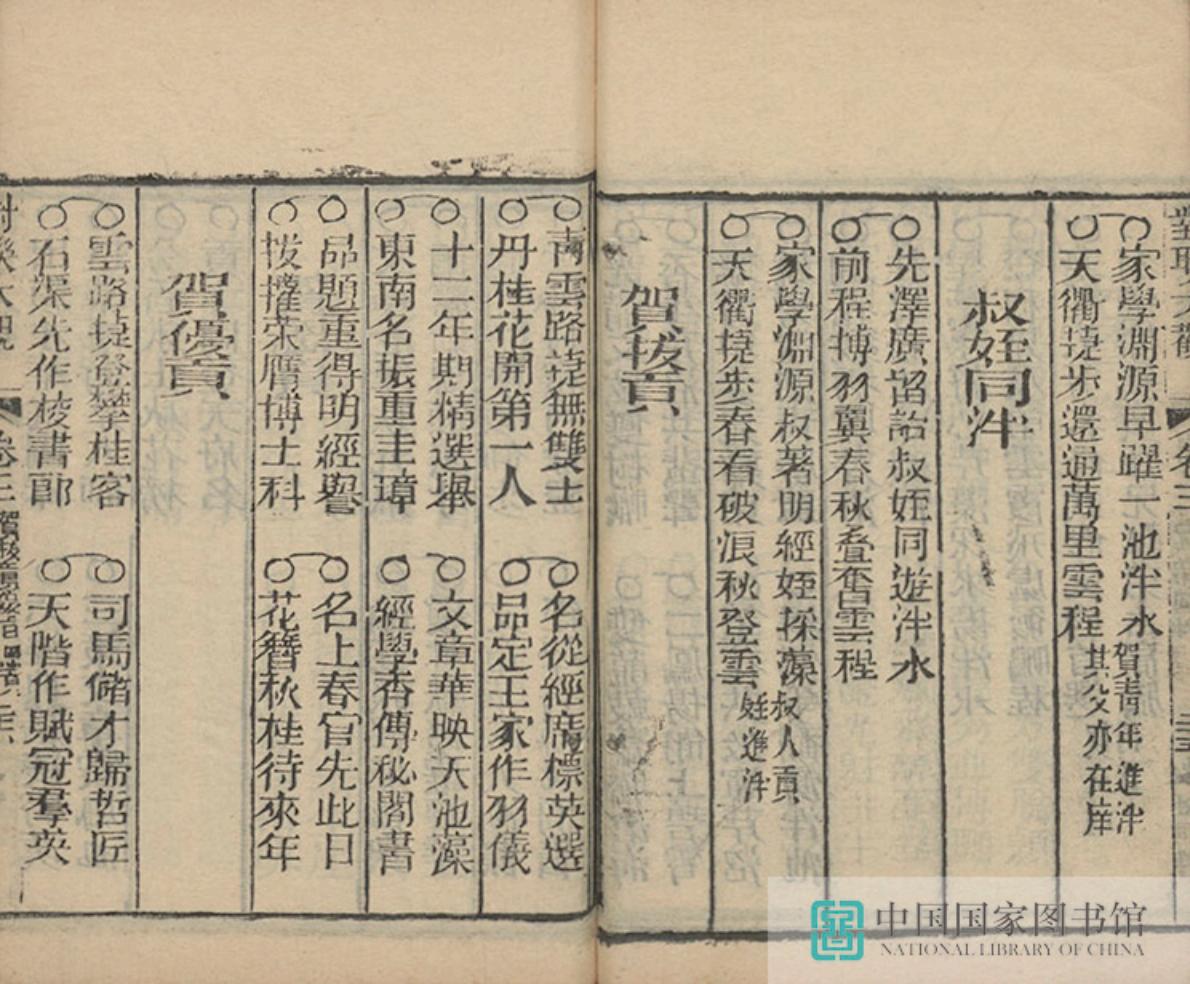 家學淵源早躍一池泮水
賀青年進泮
其父亦在庠
天衢捷步還過萬里雲程
叔姪同泮
先澤廣留詒叔姪同遊泮水
前程摶羽翼春秋疊奮雲程
家學淵源叔著明經姪採藻
天衢捷步春看破浪秋登雲
叔人貢
姪進泮
賀拔貢
青雲路捷無雙士
名從經席標英選
丹桂花開第一人
品定王家作羽儀
十二年期精選舉
文章華映天池藻
東南名振重圭璋
經學香傳秘閣書
品題重得明經譽
名上春官先此日
拔擢荣膺博士科
花簪秋桂待來年
賀優貢
雲路捷登攀桂客
司馬儲才歸哲匠
石渠先作校書郎
天階作賦冠羣英
中国国家图书馆
NATIONAL LIBRARY OF CHINA